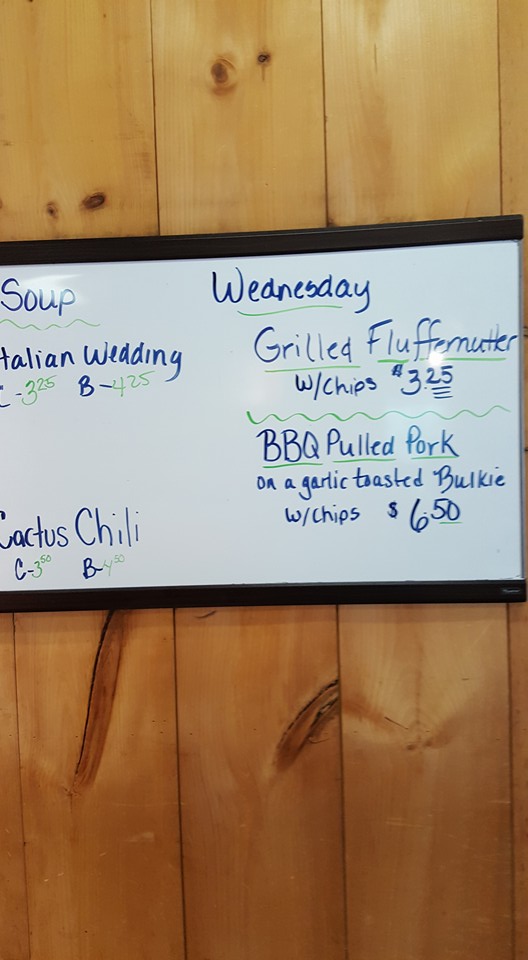 Soup
talian Wedding
C-3.25 B-4.25
Cactus Chili
C-3.50 B-4.50
Wednesday
Grilled Fluffernutter
w/chips $3.25
BBQ Pulled Pork
on a garlic toasted Bulkie
w/chips $6.50